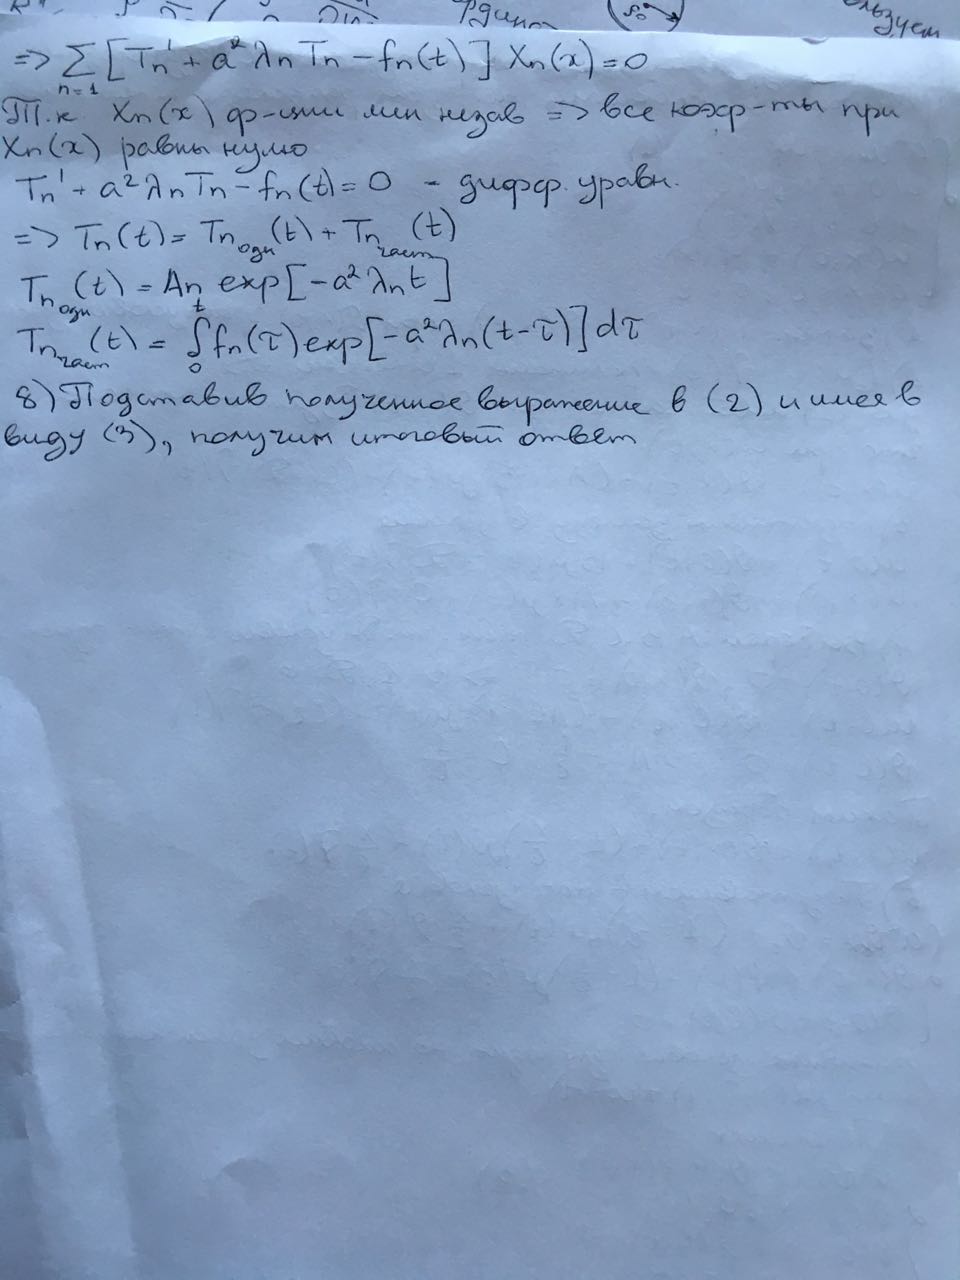 един
ользуем
=> ∑ [Tn' + a² λn Tn − fn(t)] Xn(x) = 0
n=1
Т.к Xn(x) ф-ции лин незав => все коэф-ты при
Xn(x) равны нулю
Tn' + a² λn Tn − fn(t) = 0 - дифф. уравн.
=> Tn(t) = Tn одн (t) + Tn част (t)
Tn одн (t) = An exp[−a² λn t]
Tn част (t) = ∫₀ᵗ fn(τ) exp[−a² λn (t−τ)] dτ
8) Подставив полученное выражение в (2) и имея в
виду (3), получим итоговый ответ